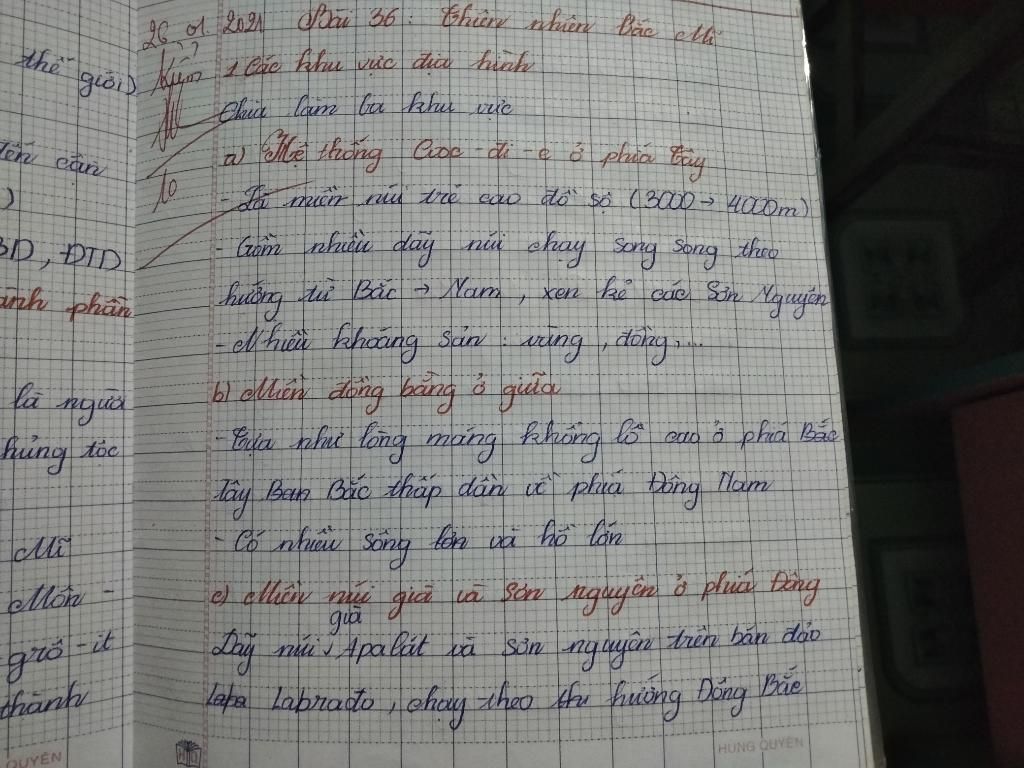 thế giới)
tên cận
)
BD, ĐTD
ành phần
là người
hủng tộc
Mĩ
Môn-
grô-it
thành
QUYÊN
26 01 2021 Bài 36: Thiên nhiên Bắc Mĩ
1 Các khu vực địa hình
Chia làm ba khu vực
a) Hệ thống Cooc-đi-e ở phía tây
10
- Là miền núi trẻ cao đồ sộ (3000 → 4000m)
- Gồm nhiều dãy núi chạy song song theo
hướng từ Bắc → Nam, xen kẽ các Sơn Nguyên
- Nhiều khoáng sản: vàng, đồng,...
b) Miền đồng bằng ở giữa
- Tựa như lòng máng khổng lồ cao ở phiá Bắc
Tây Ban Bắc thấp dần về phiá Đông Nam
- Có nhiều sông lớn và hồ lớn
c) Miền núi già và sơn nguyên ở phiá Đông
già
Dãy núi Apalát và sơn nguyên trên bán đảo
Lapa Labrađo, chạy theo hướng Đông Bắc
HUNG QUYÊN